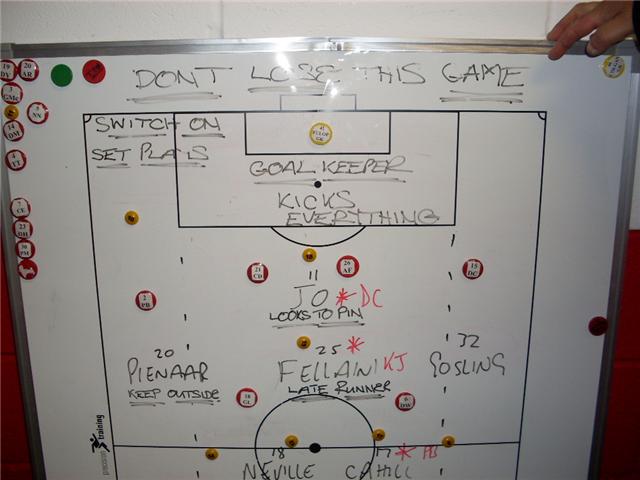 DONT LOSE THIS GAME
SWITCH ON
SET PLAYS
GOAL KEEPER
KICKS
EVERYTHING
19 DY
20 AR
3 GMc
NN
14 DM
4 TT
7 CE
23 DH
30 PM
21 CD
26 AF
15 DC
2 PB
11
JO * DC
LOOKS TO PIN
20
PIENAAR
KEEP OUTSIDE
25 *
FELLAINI KJ
LATE RUNNER
32
GOSLING
18 GL
6 DW
18
NEVILLE
17 * HB
CAHILL
training